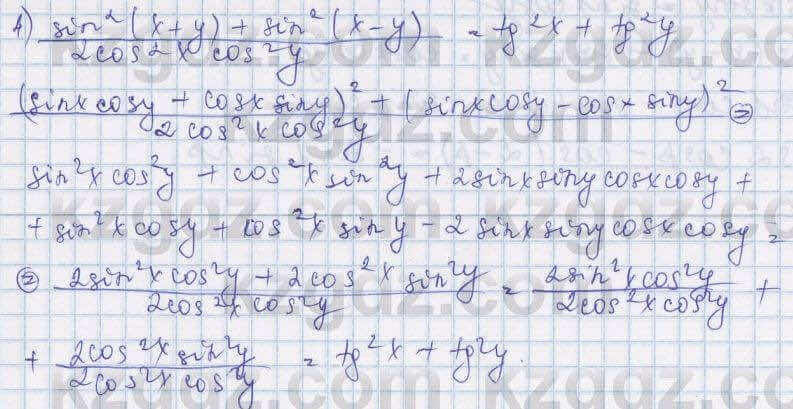 А) (sin²(x+y) + sin²(x-y))/(2cos²x cos²y) = tg²x + tg²y
((sinx cosy + cosx siny)² + (sinx cosy - cosx siny)²)/(2cos²x cos²y) =
sin²x cos²y + cos²x sin²y + 2sinx siny cosx cosy +
+ sin²x cosy + cos²x siny - 2 sinx siny cosx cosy =
= (2sin²x cos²y + 2cos²x sin²y)/(2cos²x cos²y) = (2sin²x cos²y)/(2cos²x cos²y) +
+ (2cos²x sin²y)/(2cos²x cos²y) = tg²x + tg²y.